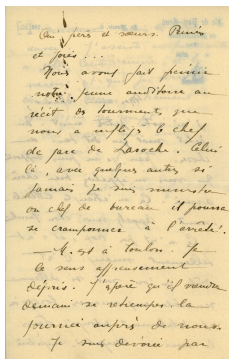 pers et sœurs. Réunis
et joies...
Nous avons fait frémir
notre jeune auditoire au
récit des tourments que
nous a infligés le chef
de gare de Laroche. Celui
là, avec quelques autres si
jamais je suis ministre
ou chef de bureau il pourra
se cramponner à l'arrêté.
— M. est à Toulon. Je
le sens affreusement
déçu. J'espère qu'il viendra
demain se retremper la
journée auprès de nous.
Je suis dévorée par